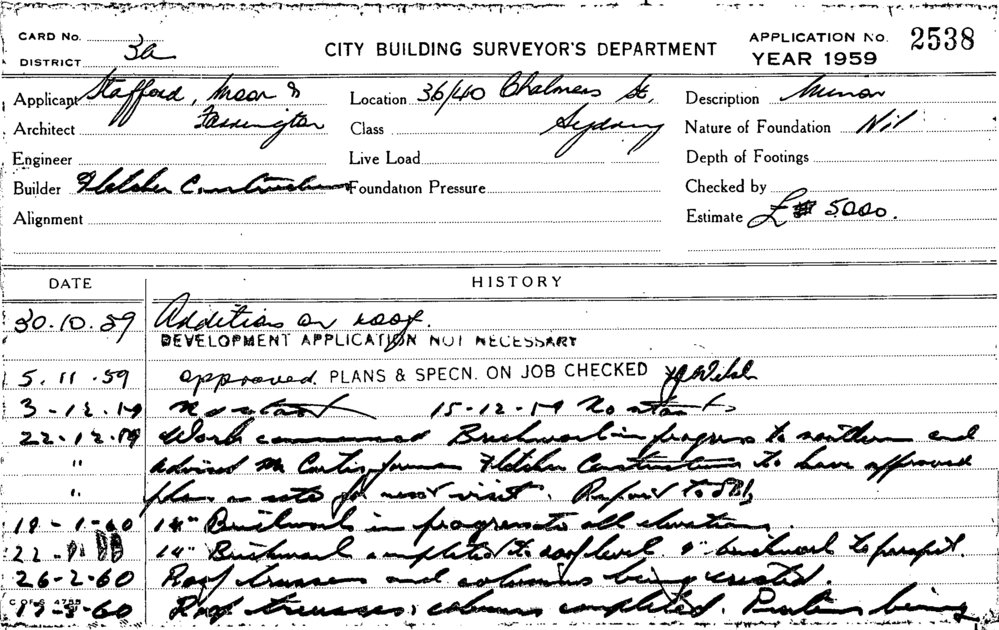 CARD No.
DISTRICT 3a
CITY BUILDING SURVEYOR'S DEPARTMENT
APPLICATION No. 2538
YEAR 1959
Applicant Stafford, Moor &
Architect Farrington
Engineer
Builder Fletcher Constructions
Alignment
Location 36/40 Chalmers St,
Class Sydney
Live Load
Foundation Pressure
Description Minor
Nature of Foundation Nil
Depth of Footings
Checked by
Estimate £ 5000.
DATE HISTORY
30.10.59 Addition on roof.
DEVELOPMENT APPLICATION NOT NECESSARY
5.11.59 approved. PLANS & SPECN. ON JOB CHECKED
3-12-59 No start 15-12-59 No start
22-12-59 Work commenced Brickwork in progress to northern end
" Advised Mr Curtis foreman Fletcher Constructions to have approved
" plan on site for next visit. Report to
19-1-60 14" Brickwork in progress to all elevations.
22- 14" Brickwork completed to roof level. 9" brickwork to parapet.
26-2-60 Roof trusses and columns being erected.
-60 Roof trusses, columns completed. being